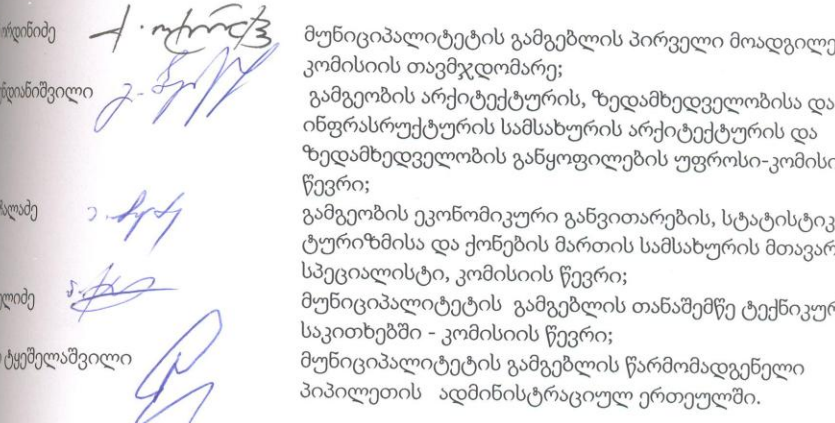 მუნიციპალიტეტის გამგებლის პირველი მოადგილე
კომისიის თავმჯდომარე;
გამგეობის არქიტექტურის, ზედამხედველობისა და
ინფრასრუქტურის სამსახურის არქიტექტურის და
ზედამხედველობის განყოფილების უფროსი-კომისი
წევრი;
გამგეობის ეკონომიკური განვითარების, სტატისტიკ
ტურიზმისა და ქონების მართის სამსახურის მთავარ
სპეციალისტი, კომისიის წევრი;
მუნიციპალიტეტის გამგებლის თანაშემწე ტექნიკურ
საკითხებში - კომისიის წევრი;
ტყეშელაშვილი მუნიციპალიტეტის გამგებლის წარმომადგენელი
პიპილეთის ადმინისტრაციულ ერთეულში.